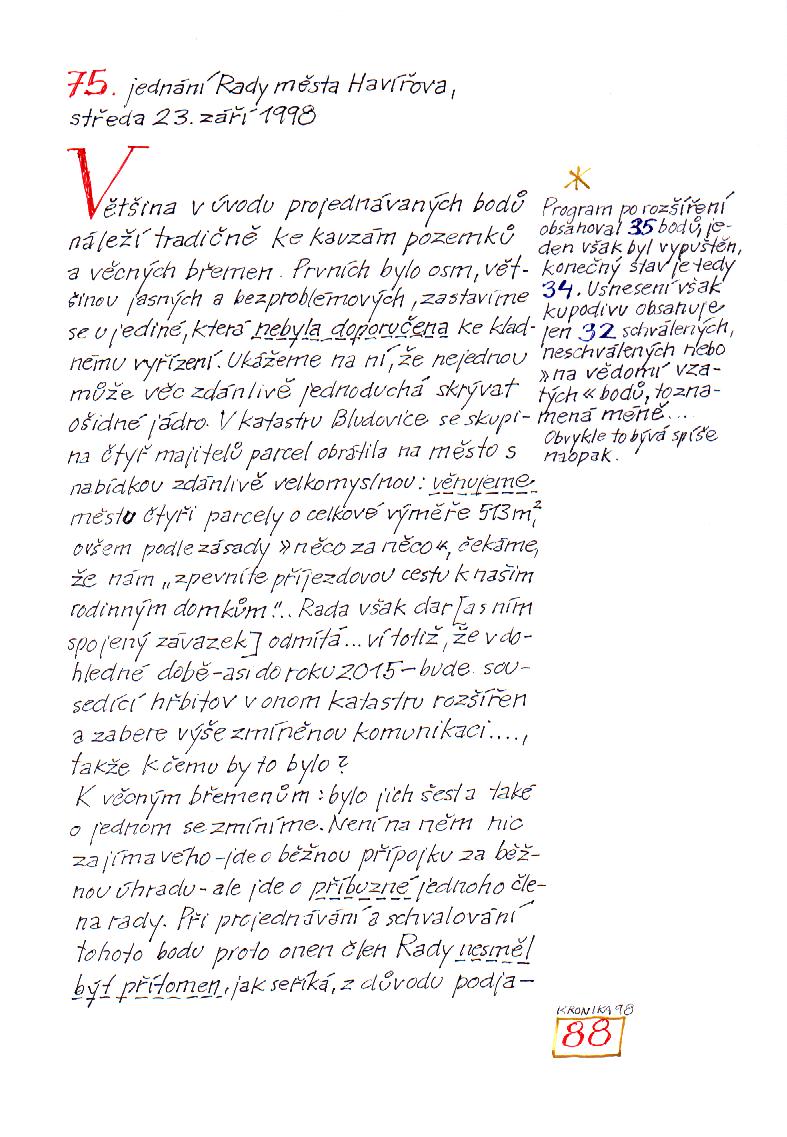 75. jednání Rady města Havířova,
středa 23. září 1998
Většina v úvodu projednávaných bodů
náleží tradičně ke kauzám pozemků
a věcných břemen. Prvních bylo osm, vět-
šinou jasných a bezproblémových, zastavíme
se u jediné, která nebyla doporučena ke klad-
nému vyřízení. Ukážeme na ní, že nejednou
může věc zdánlivě jednoduchá skrývat
ošidné jádro. V katastru Bludovice se skupi-
na čtyř majitelů parcel obrátila na město s
nabídkou zdánlivě velkomyslnou: věnujeme
městu čtyři parcely o celkové výměře 513 m²,
ovšem podle zásady »něco za něco«, čekáme,
že nám „zpevníte příjezdovou cestu k našim
rodinným domkům"... Rada však dar [a s ním
spojený závazek] odmítá... ví totiž, že v do-
hledné době - asi do roku 2015 - bude sou-
sedící hřbitov v onom katastru rozšířen
a zabere výše zmíněnou komunikaci....,
takže k čemu by to bylo?
K věcným břemenům: bylo jich šest a také
o jednom se zmíníme. Není na něm nic
zajímavého - jde o běžnou přípojku za běž-
nou úhradu - ale jde o příbuzné jednoho čle-
na rady. Při projednávání a schvalování
tohoto bodu proto onen člen Rady nesměl
být přítomen, jak se říká, z důvodu podja-
Program po rozšíření
obsahoval 35 bodů, je-
den však byl vypuštěn,
konečný stav je tedy
34. Usnesení však
kupodivu obsahuje
jen 32 schválených,
neschválených nebo
»na vědomí vza-
tých« bodů, to zna-
mená méně...
Obvykle to bývá spíše
naopak.
KRONIKA 98
88